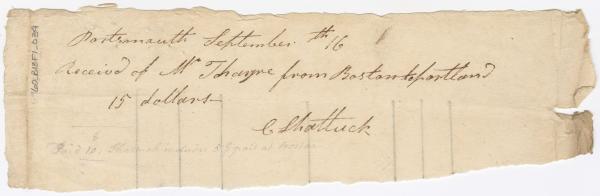 Portsmouth September th 16
Received of Mr Thayre from Boston to portland
15 dollars
C Shattuck
Paid 10